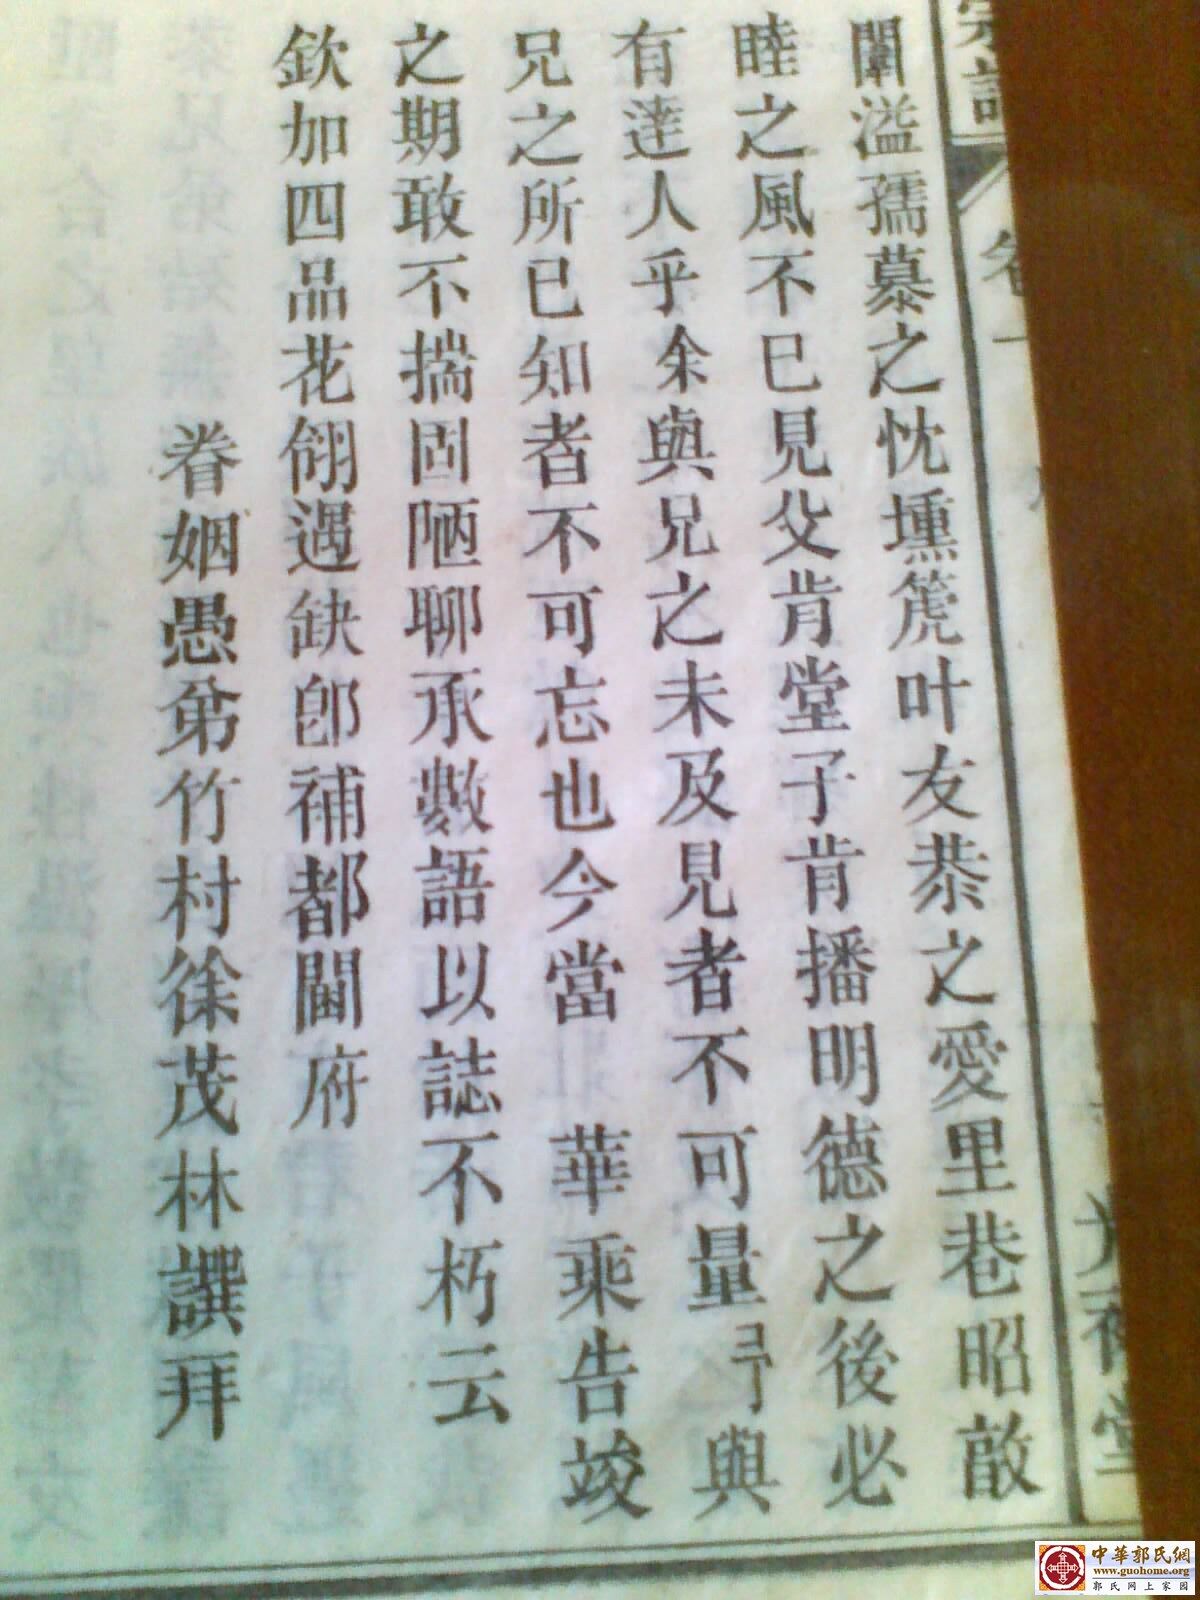 宗譜
卷一
闈溢孺慕之忱壎箎叶友恭之愛里巷昭敵
睦之風不巳見父肯堂子肯播明德之後必
有達人乎余與兄之未及見者不可量與
兄之所已知者不可忘也今當 華乘告竣
之期敢不揣固陋聊承數語以誌不朽云
欽加四品花翎遇缺卽補都閫府
眷姻愚弟竹村徐茂林譔拜
中華郭氏網
www.guohome.org
郭氏网上家园